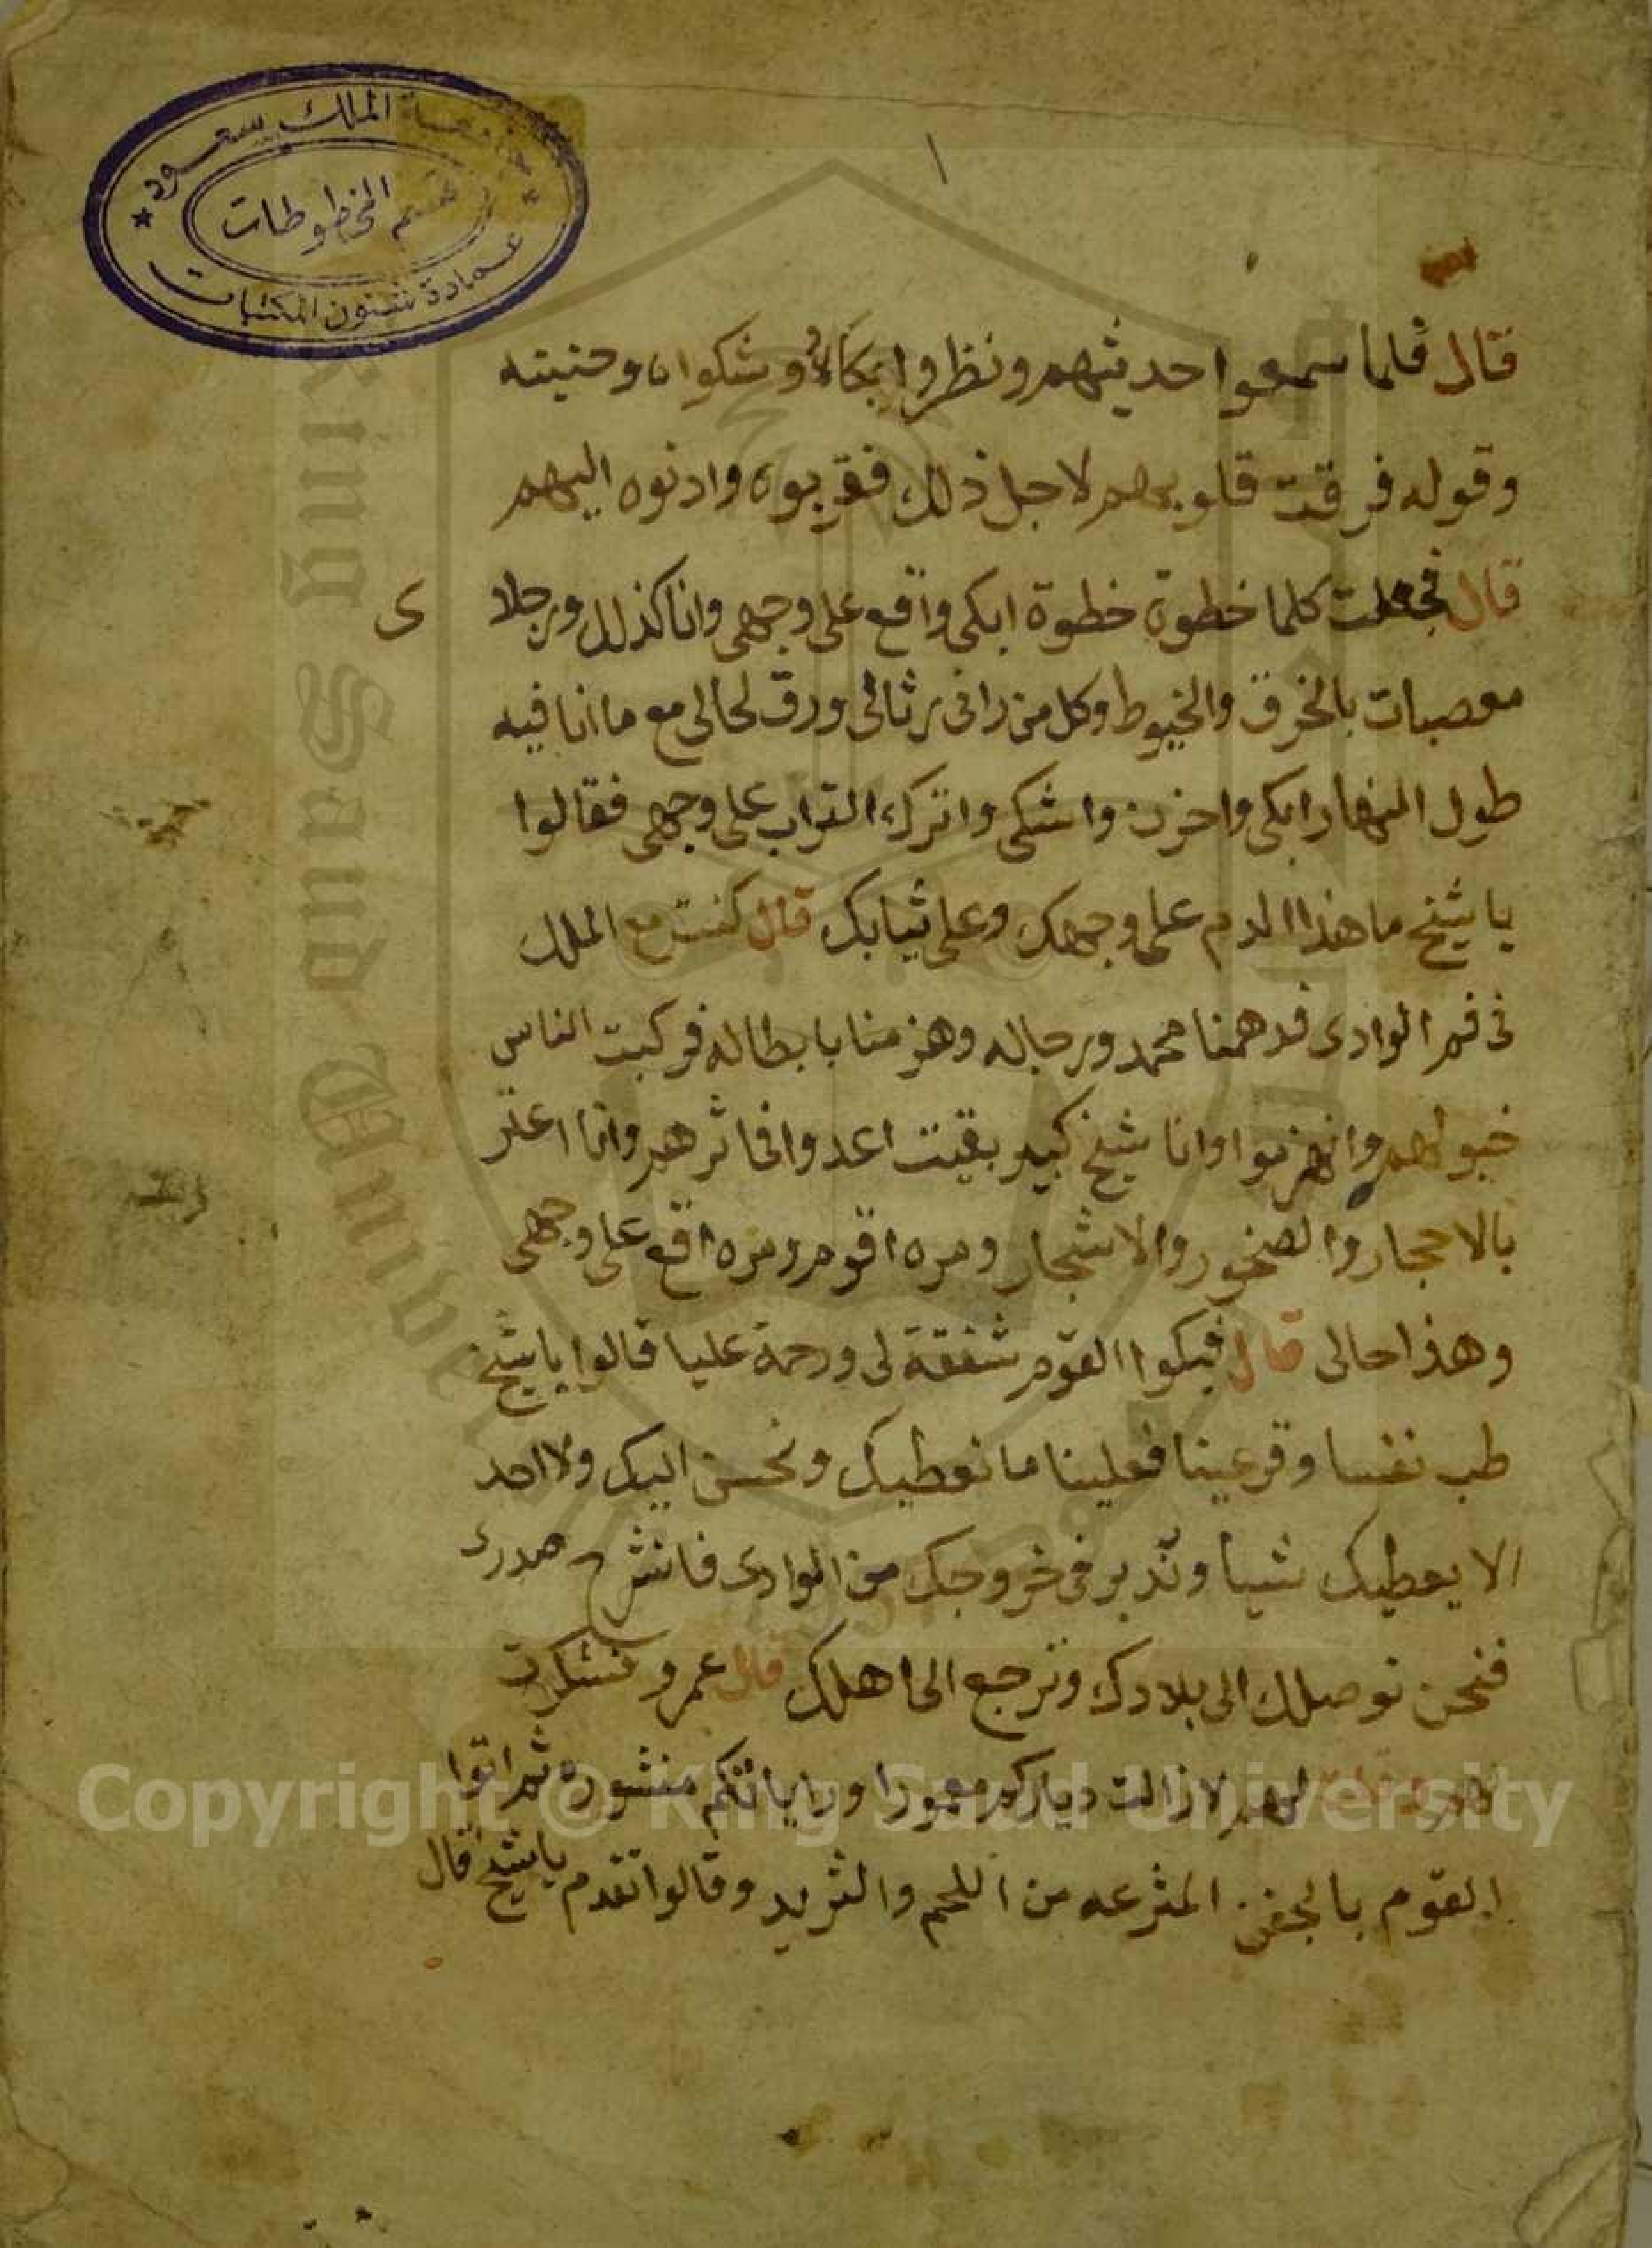 جامعة الملك سعود
قسم المخطوطات
عمادة شئون المكتبات
١
قال فلما سمعوا حديثهم ونظروا بكاؤه وشكواه وحنينه
وقوله فرقت قلوبهم لاجل ذلك فقربوه وادنوه اليهم
قال فجعلت كلما خطوة خطوة ابكى واقع على وجهى وانا كذلك ورجلا
ى
معصبات بالخرق والخيوط وكل من رانى رثالى ورق لحالى مع ما انا فيه
طول النهار ابكى واحزن واشكى واترك التراب على وجهى فقالوا
يا شيخ ما هذا الدم على وجهك وعلى ثيابك قال كنت مع الملك
فى فم الوادى فدهمنا محمد ورجاله وهزمنا بابطاله فركبت الناس
خيولهم وانهزموا وانا شيخ كبير بقيت اعدوا فى اثرهم وانا اعثر
بالاحجار والصخور والاشجار ومره اقوم ومره اقع على وجهى
وهذا حالى قال فبكوا القوم شفقة لى ورحمة عليا قالوا يا شيخ
طب نفسا وقر عينا فعلينا ما نعطيك ونحسن اليك ولا احد
الا يعطيك شيا وندبر فى خروجك من الوادى فانشرح صدرى
فنحن نوصلك الى بلادك وترجع الى اهلك قال عمرو فشكرت
لهم وقلت لهم لا زالت دياركم معمورا وراياتكم منشورة ثم اتوا
القوم بالجفن المترعه من اللحم والثريد وقالوا تقدم يا شيخ قال
King Saud University
Copyright © King Saud University